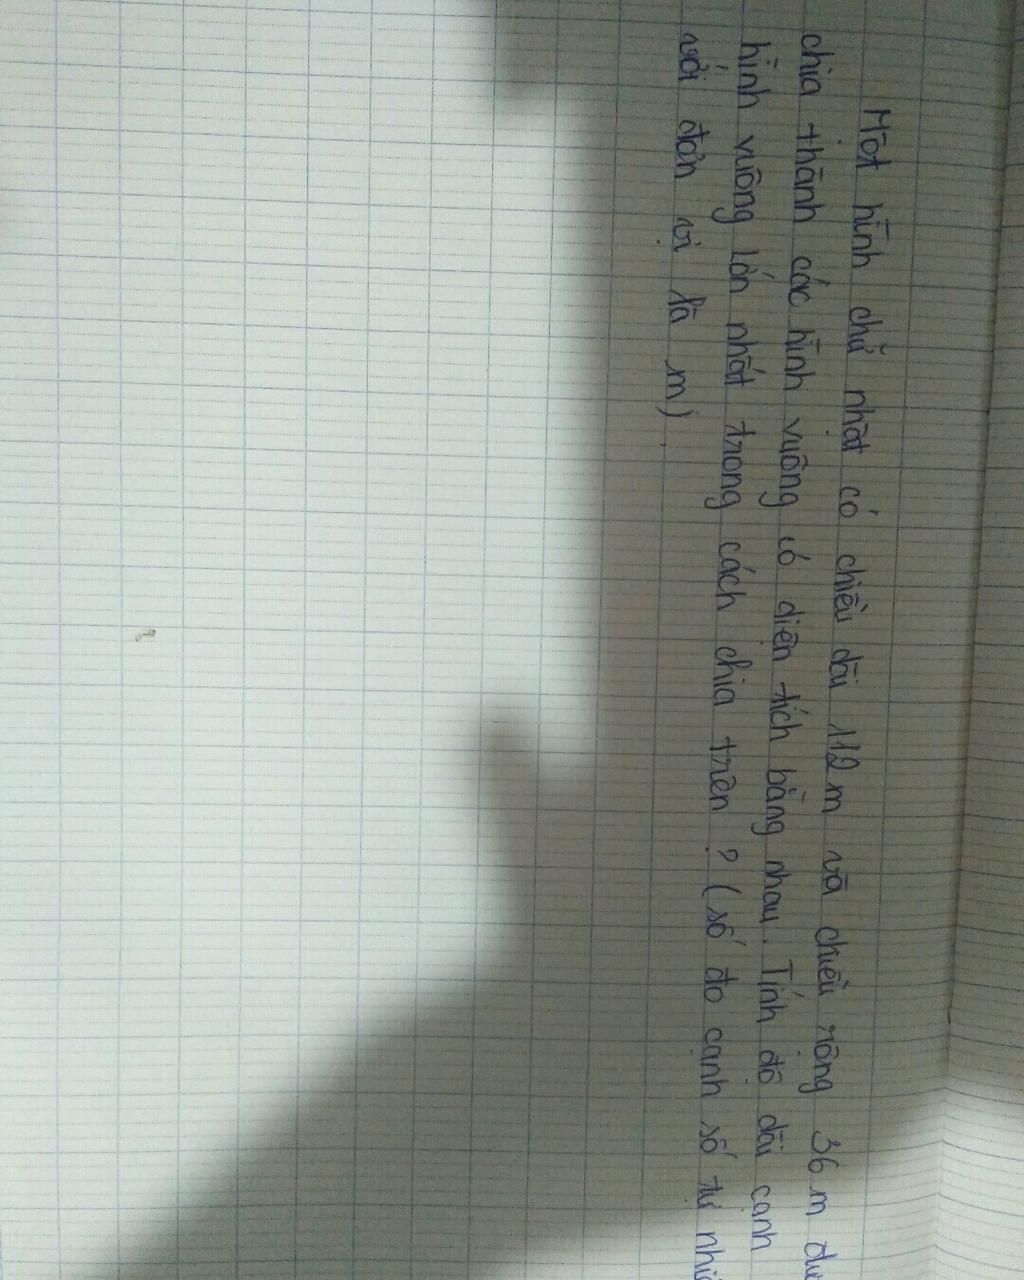 Một hình chữ nhật có chiều dài 112 m và chiều rộng 36 m
chia thành các hình vuông có diện tích bằng nhau. Tính độ dài cạnh
hình vuông lớn nhất trong cách chia trên ? (số đo cạnh số tự
với đơn vị là m)